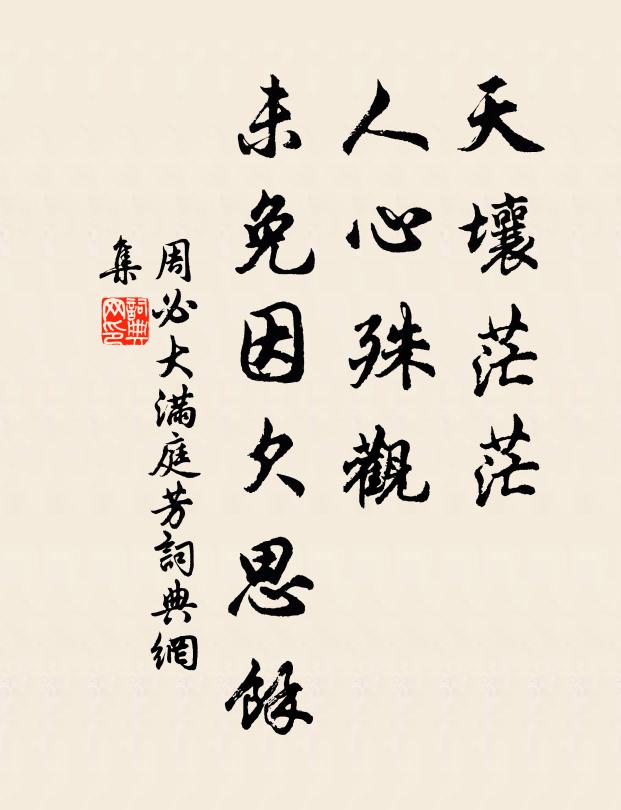 天壤茫茫
人心殊觀
未免因欠思餘
周必大滿庭芳詞典網
集
詞典
网印